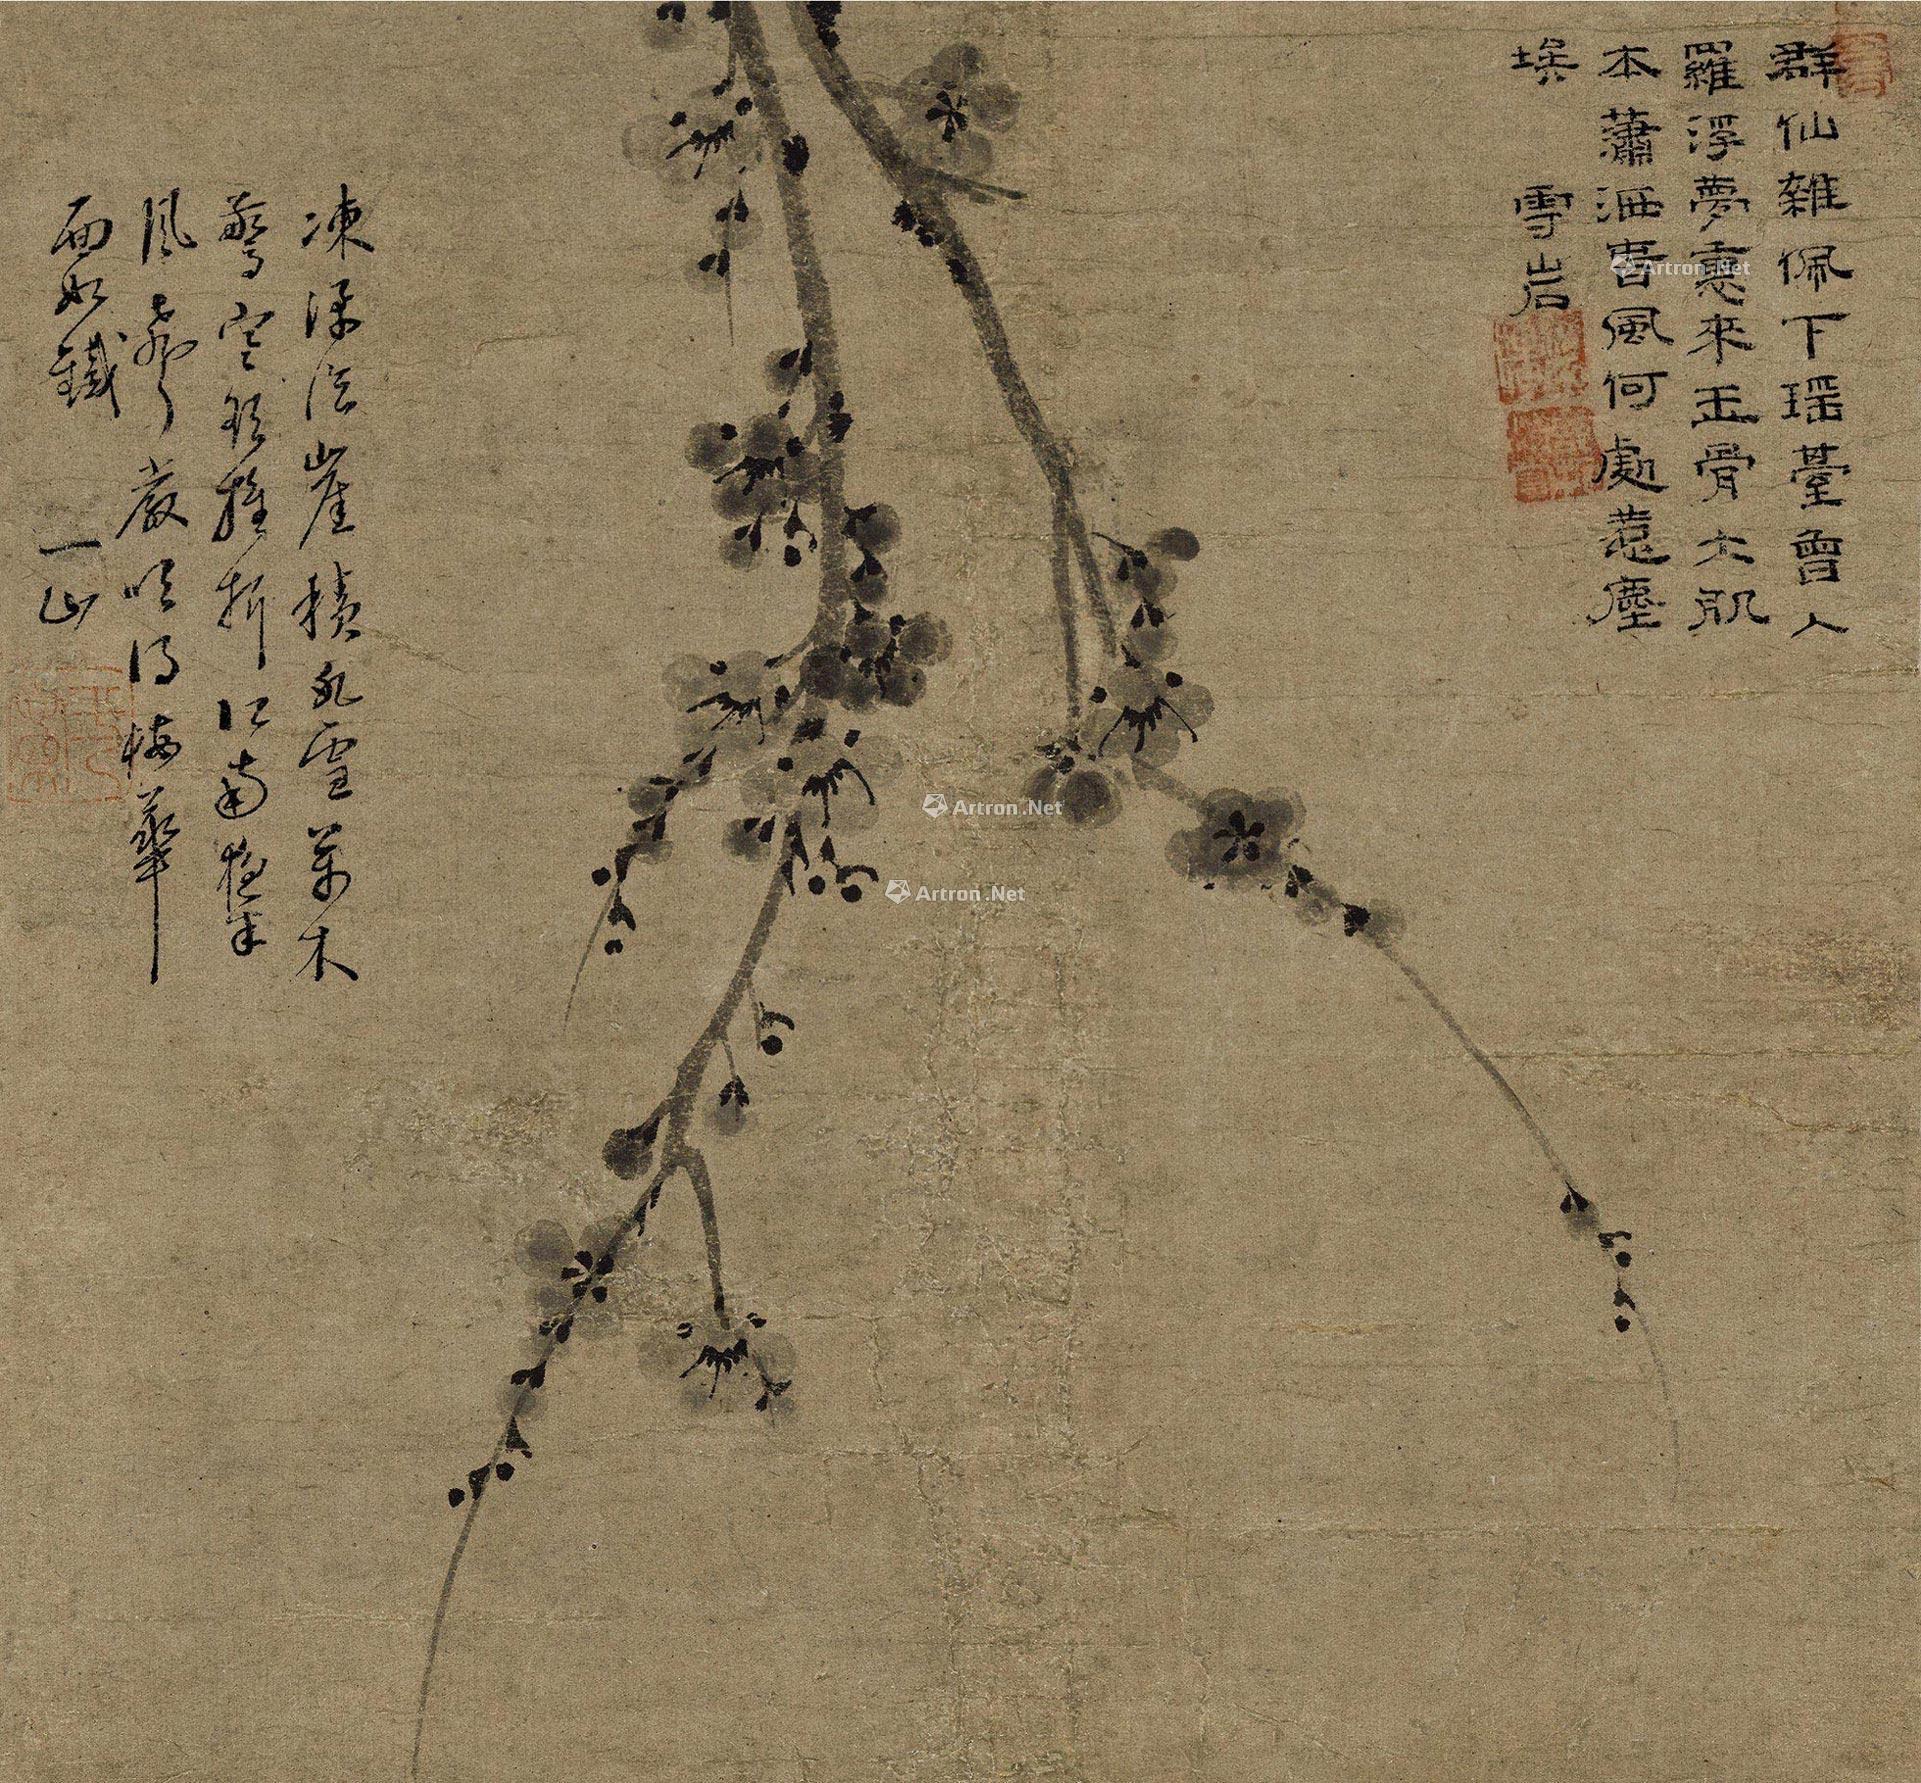 群仙雜佩下瑶臺曾入
羅浮夢裏來玉骨仌肌
本蕭洒春風何處惹塵
埃 雪岩
凍深陰崖積乱雪萬木
驚空欲摧折江南夜半
風聲嚴吹得梅華
面如鐵 一山
Artron.Net
Artron.Net
Artron.Net